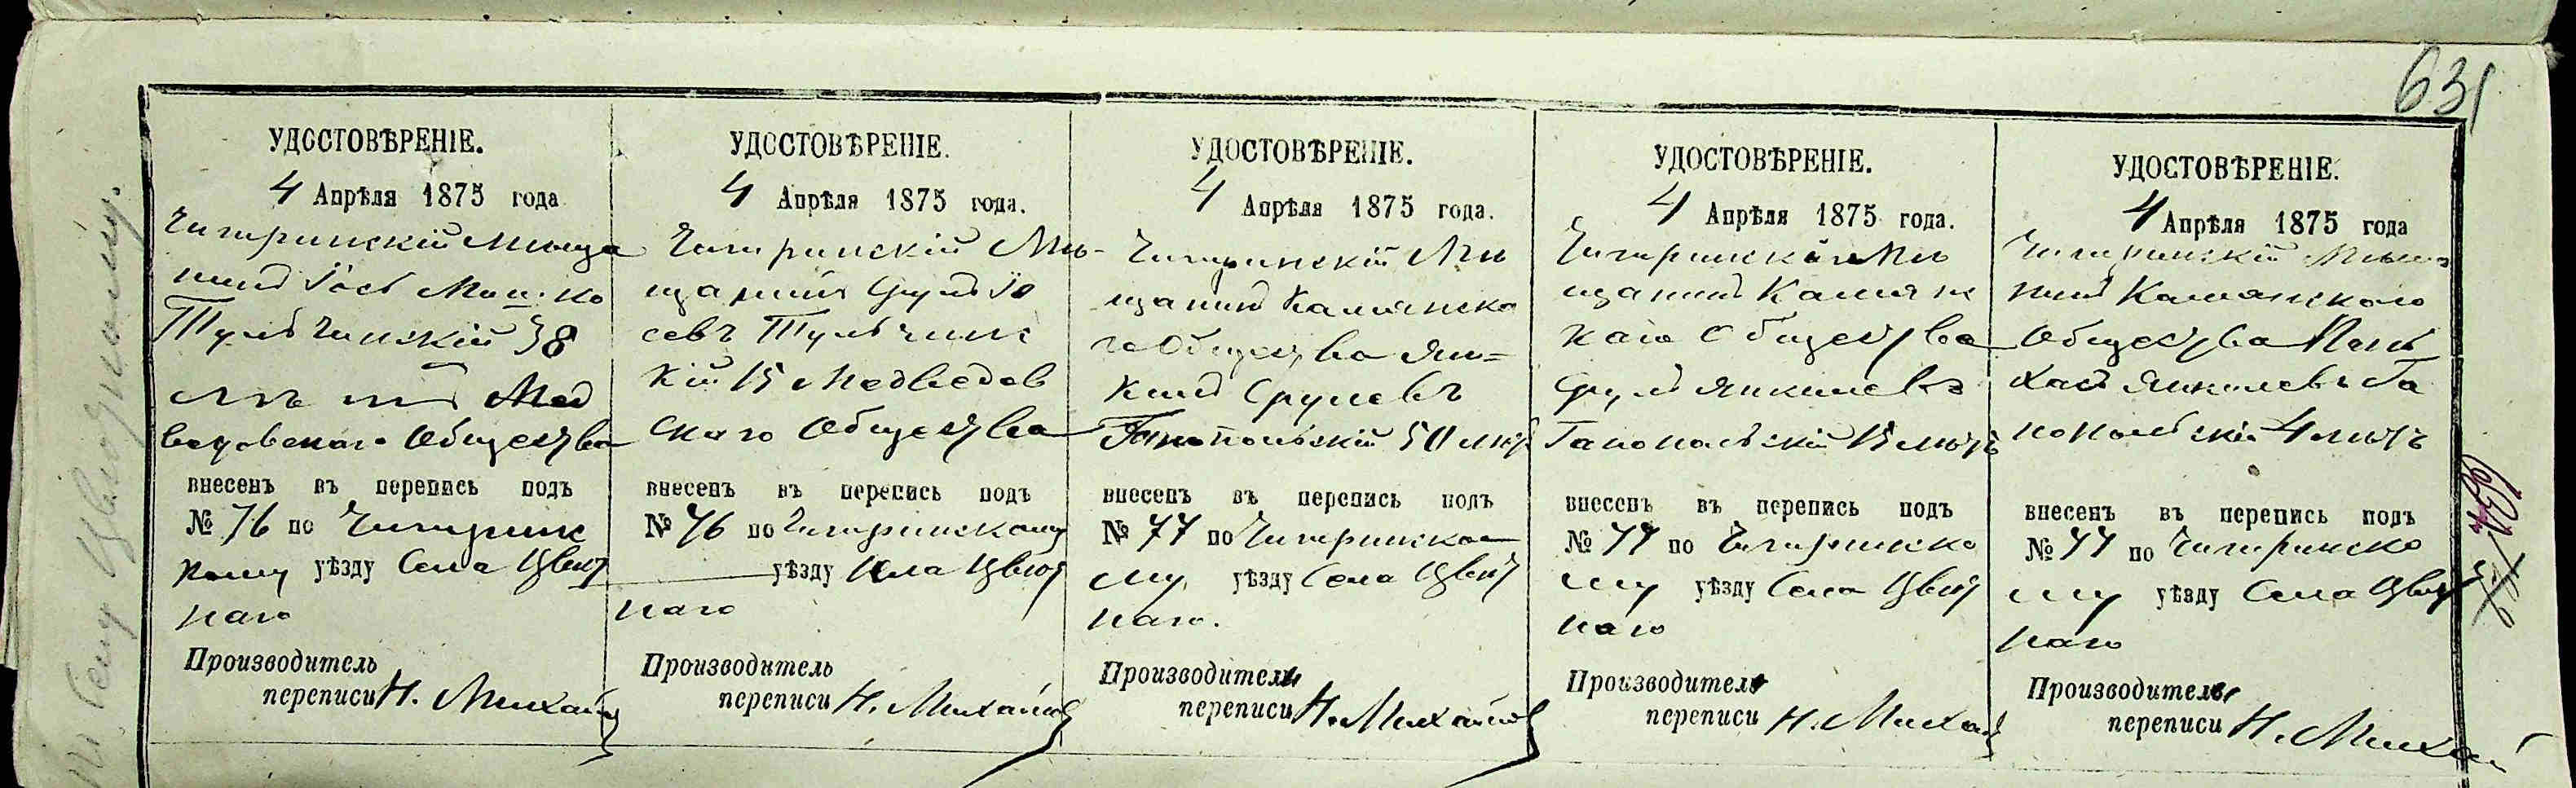 631
УДОСТОВѢРЕНІЕ.
4 Апрѣля 1875 года
Чигиринскій Мѣща
нинъ Іось Мошко
Тульчинскій 38
лѣтъ Мед
ведовскаго Общества
внесенъ въ перепись подъ
№ 76 по Чигиринс
кому уѣзду Села Цвѣт
наго
Производитель
переписи Н. Михай
УДОСТОВѢРЕНІЕ.
4 Апрѣля 1875 года.
Чигиринскій Мѣ-
щанинъ Сруль Іо
севъ Тульчинс
кій 15 Медведов
скаго Общества
внесенъ въ перепись подъ
№ 76 по Чигиринскому
уѣзду Села Цвѣт
наго
Производитель
переписи Н. Михайлов
УДОСТОВѢРЕНІЕ.
4 Апрѣля 1875 года.
Чигиринскій Мѣ
щанинъ Камянска
го Общества Ян=
кель Срулевъ
Ганопольскій 50 лѣтъ
внесенъ въ перепись подъ
№ 77 по Чигиринско
му уѣзду Села Цвѣт
наго.
Производитель
переписи Н. Михайлов
УДОСТОВѢРЕНІЕ.
4 Апрѣля 1875 года.
Чигиринскій Мѣ
щанинъ Камянс
каго Общества
Сруль Янкилевъ
Ганопольскій 15 лѣтъ
внесенъ въ перепись подъ
№ 77 по Чигиринско
му уѣзду Села Цвѣт
наго
Производитель
переписи Н. Михай
УДОСТОВѢРЕНІЕ.
4 Апрѣля 1875 года
Чигиринскій Мѣща
нинъ Камянскаго
Общества Пинь
хасъ Янкилевъ Га
нопольскій 4 лѣтъ
внесенъ въ перепись подъ
№ 77 по Чигиринско
му уѣзду Села Цвѣт
наго
Производитель
переписи Н. Михай